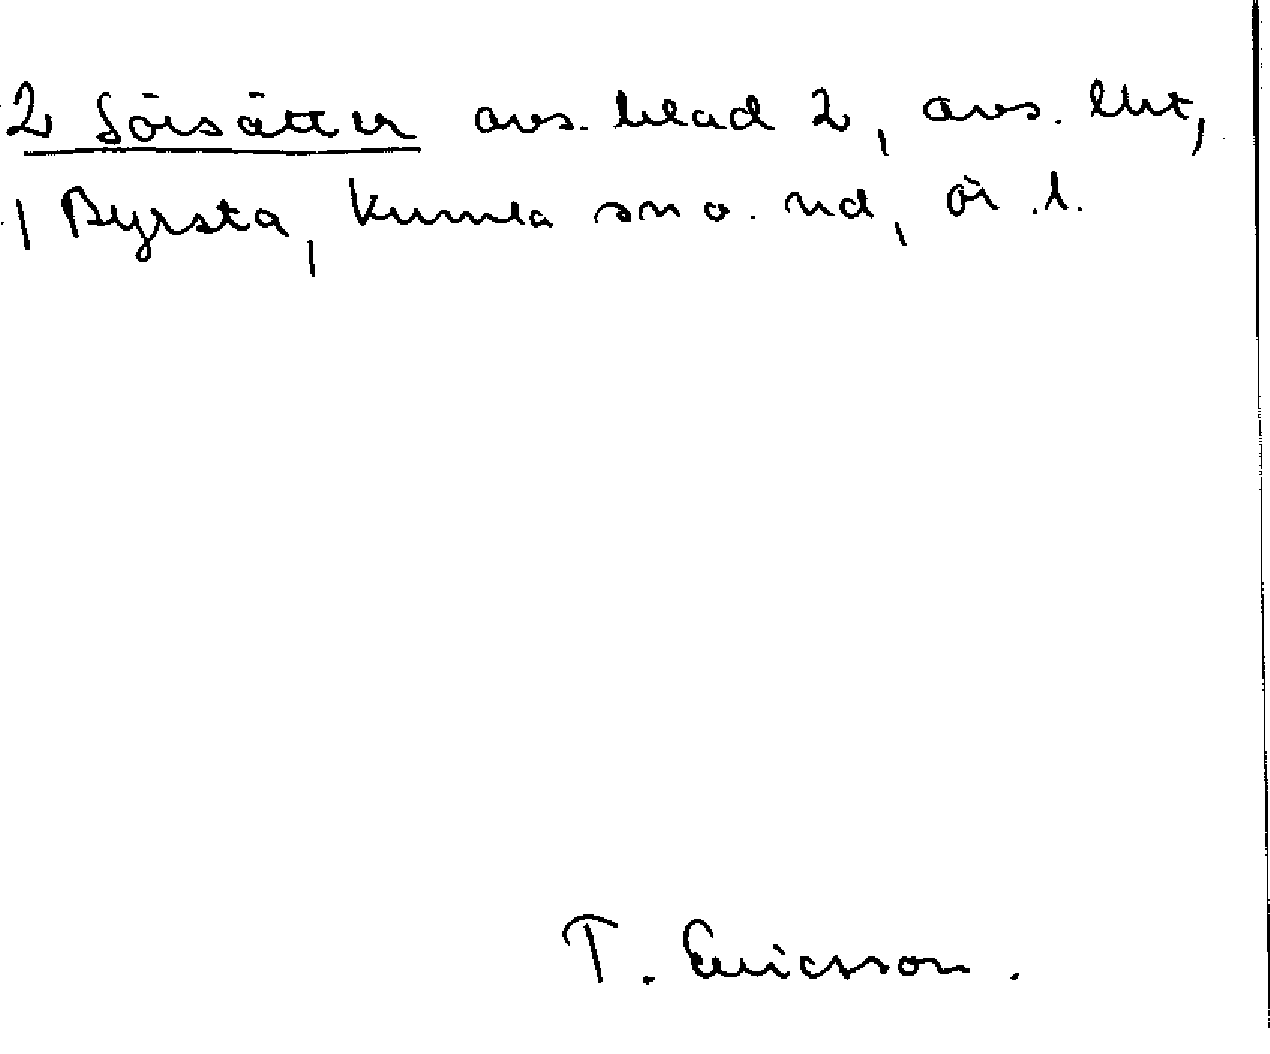 2 Sörsätter avs. blad 2, avs. lht,
1 Byrsta, Kumla sn o. hd, ör. l.
T. Ericsson.